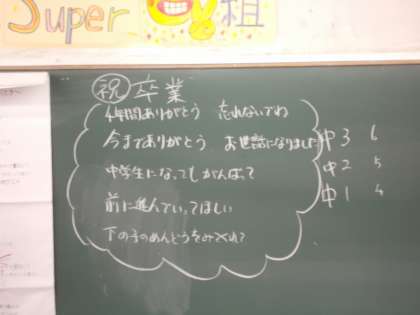 Super 組
祝 卒業
6年間ありがとう 忘れないでね
今までありがとう お世話になりました
中学生になってもがんばって
前に進んでいってほしい
下の子のめんどうをみてくれて
中3 6
中2 5
中1 4